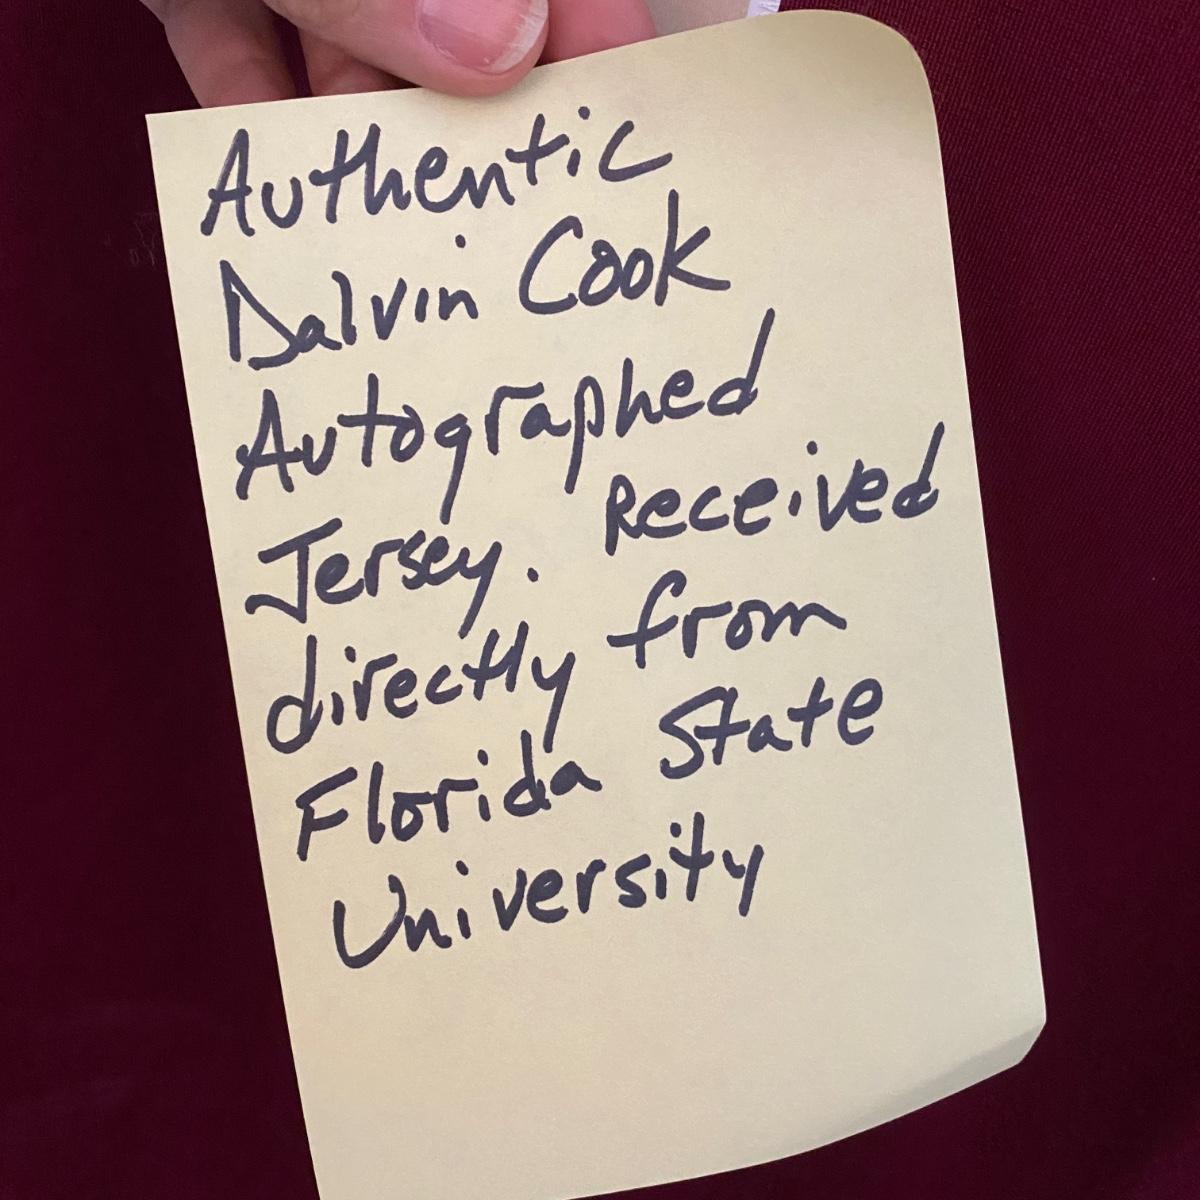 Authentic
Dalvin Cook
Autographed
Jersey. Received
directly from
Florida State
University